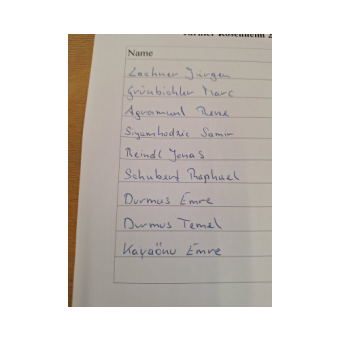 Turnier Rosenheim 2
Name
Lachner Jürgen
Grünbichler Marc
Agramunt Rene
Siyamhodzic Samir
Reindl Jonas
Schubert Raphael
Durmus Emre
Durmus Temel
Kayaönu Emre